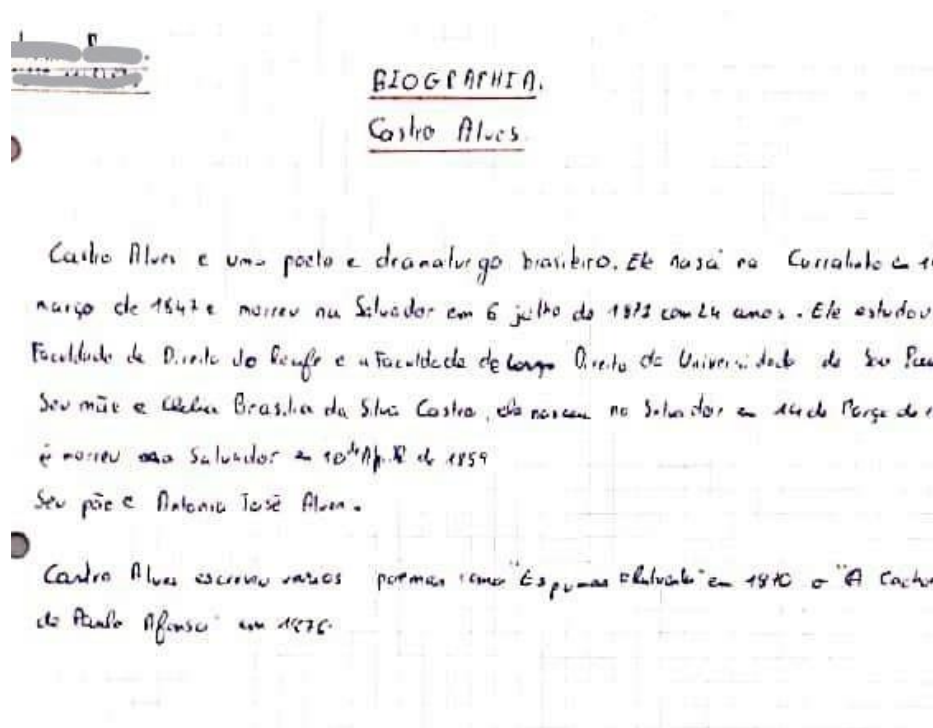 BIOGRAPHIA.
Castro Alves.
Castro Alves e uma poeto e dramaturgo brasileiro. Ele nasci na Curralinho em 1
março de 1847 e morreu na Salvador em 6 julho de 1871 com 24 anos. Ele estudou
Faculdade de Direito do Recife e a Faculdade de Largo Direito da Universidade de Sao
Seu mãe e Clelia Brasilia da Silva Castro, ela nasceu no Salvador em 14 de Março de
é morreu Salvador em 10 de de 1859
Seu pãe e Antonio José Alves.
Castro Alves escreveu varios poemas como "Espumas em 1870 o "A
de Paulo Afonso" em 1876.